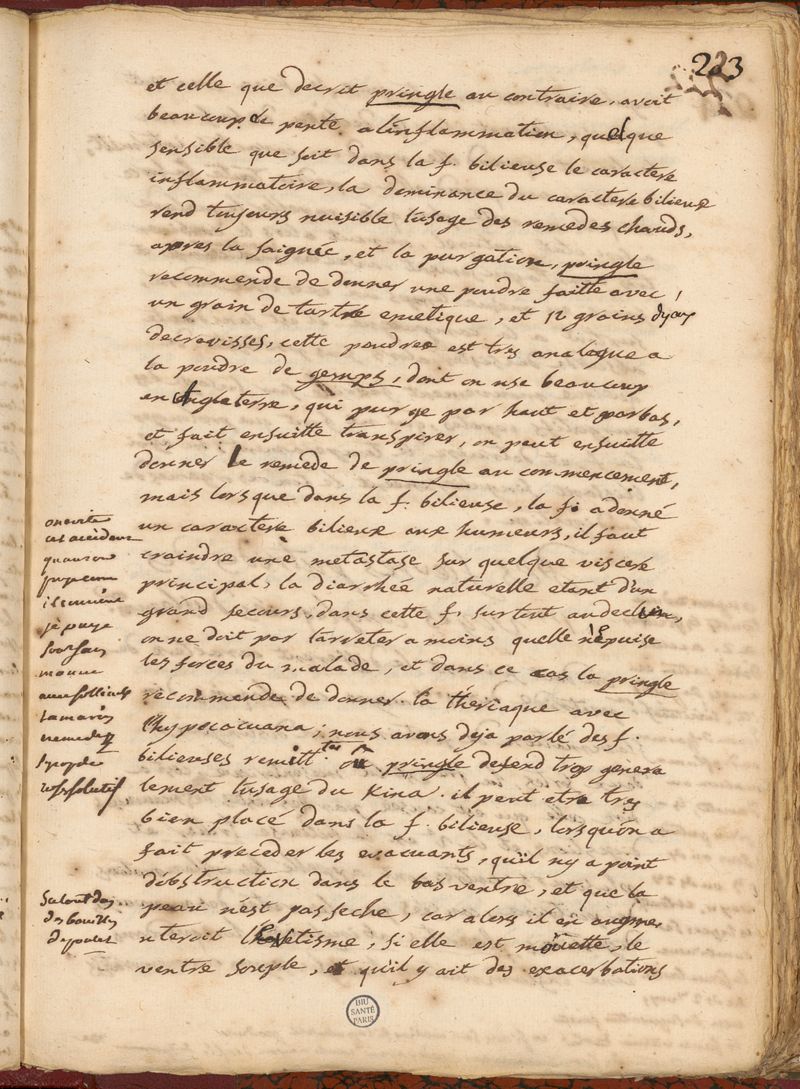 223
et celle que decrit pringle au contraire, avoit
beaucoup de pente a l'inflammation, quelque
sensible que soit dans la f. bilieuse le caractere
inflammatoire, la dominance du caractere bilieux
rend toujours nuisible l'usage des remedes chauds,
apres la saignée, et la purgation, pringle
recommende de donner une poudre faitte avec
un grain de tartre emetique, et 12 grains d'yeux
decrevisses, cette poudre est tres analogue a
la poudre de gemps, dont on use beaucoup
en Angleterre, qui purge par haut et par bas,
et fait ensuitte transpirer, on peut ensuitte
donner le remede de pringle au commencement,
mais lorsque dans la f. bilieuse, la f. a donné
un caractere bilieux aux humeurs, il faut
craindre une metastase sur quelque viscere
principal, la diarrhée naturelle etant d'un
grand secours, dans cette f. surtout au declin,
on ne doit pas l'arreter a moins quelle n'epuise
les forces du malade, et dans ce cas la pringle
recommende de donner la theriaque avec
l'hypococuana; nous avons deja parlé des f.
bilieuses remitt.tes pringle defend trop genera
lement l'usage du Kina. il peut etre tres
bien placé dans la f. bilieuse, lorsqu'on a
fait preceder les evacuants, qu'il n'y a point
d'obstruction dans le bas ventre, et que la
peau n'est pas seche, car alors il en augme
nteroit l'eretisme, si elle est moüette, le
ventre souple, et qu'il y ait des exacerbations
on evite
ces accidens
quand on
il convient
manne
tamarin
remede
BIU
SANTÉ
PARIS